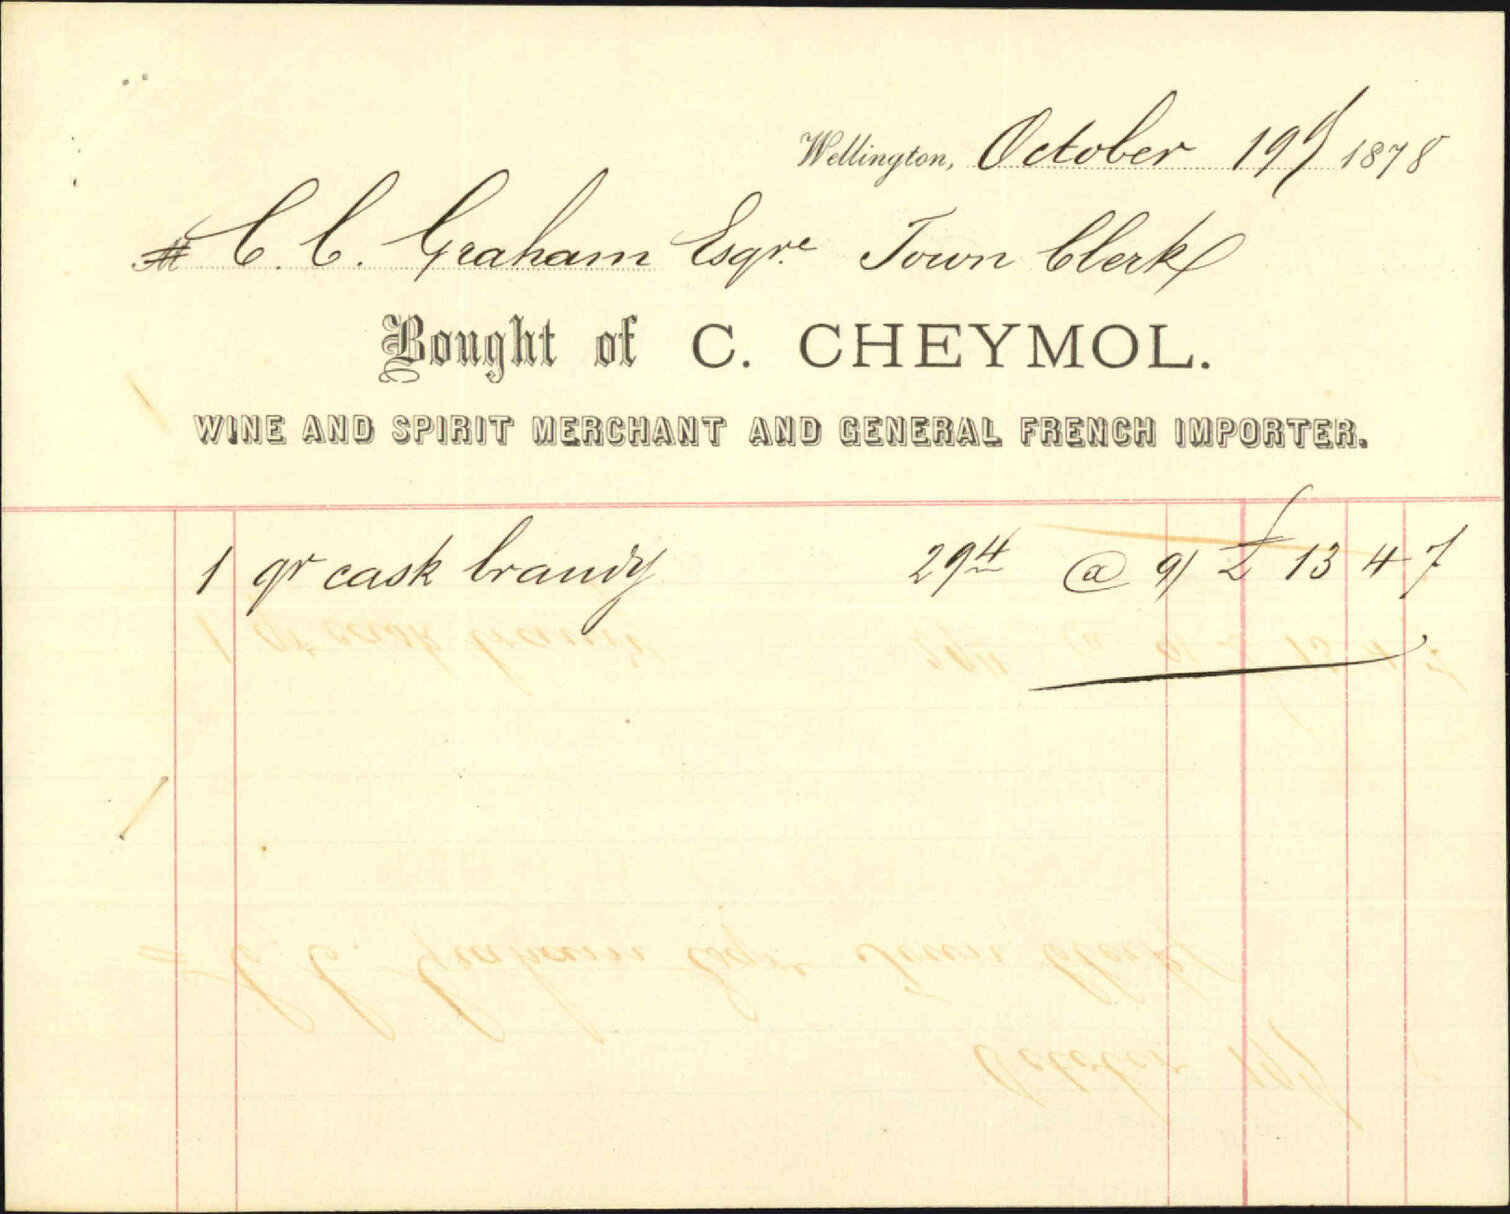 Wellington, October 19th 1878
M C. C. Graham Esqre Town Clerk
Bought of C. CHEYMOL.
WINE AND SPIRIT MERCHANT AND GENERAL FRENCH IMPORTER.
1 qr cask brandy 29 4 @ 9/ £ 13 4 7